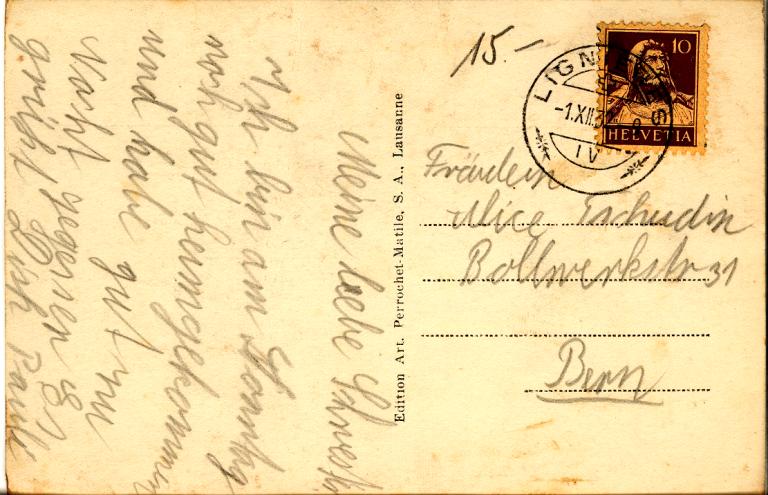 15.-
10
HELVETIA
LIGNIÈRES
-1.XII.
IV
Fräulein
Alice Tschudin
Bollwerkstr 31
Bern
Edition Art. Perrochet-Matile, S. A., Lausanne
Meine liebe Schwester
Ich bin am Sonntag
noch gut heimgekommen
und habe gut zu
Nacht gegessen Es
grüßt Dich Paul